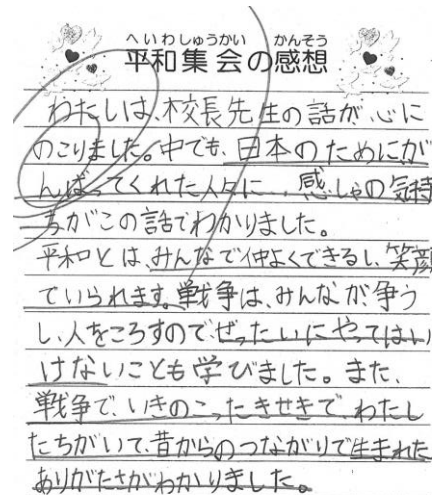 へいわしゅうかい かんそう
平和集会の感想
わたしは、校長先生の話が、心に
のこりました。中でも、日本のためにが
んばってくれた人々に、感しゃの気持
ちがこの話でわかりました。
平和とは、みんなで仲よくできるし、笑顔
でいられます。戦争は、みんなが争う
し、人をころすので、ぜったいにやってはい
けないことも学びました。また、
戦争で、いきのこったきせきで、わたし
たちがいて、昔からのつながりで生まれた
ありがたさがわかりました。